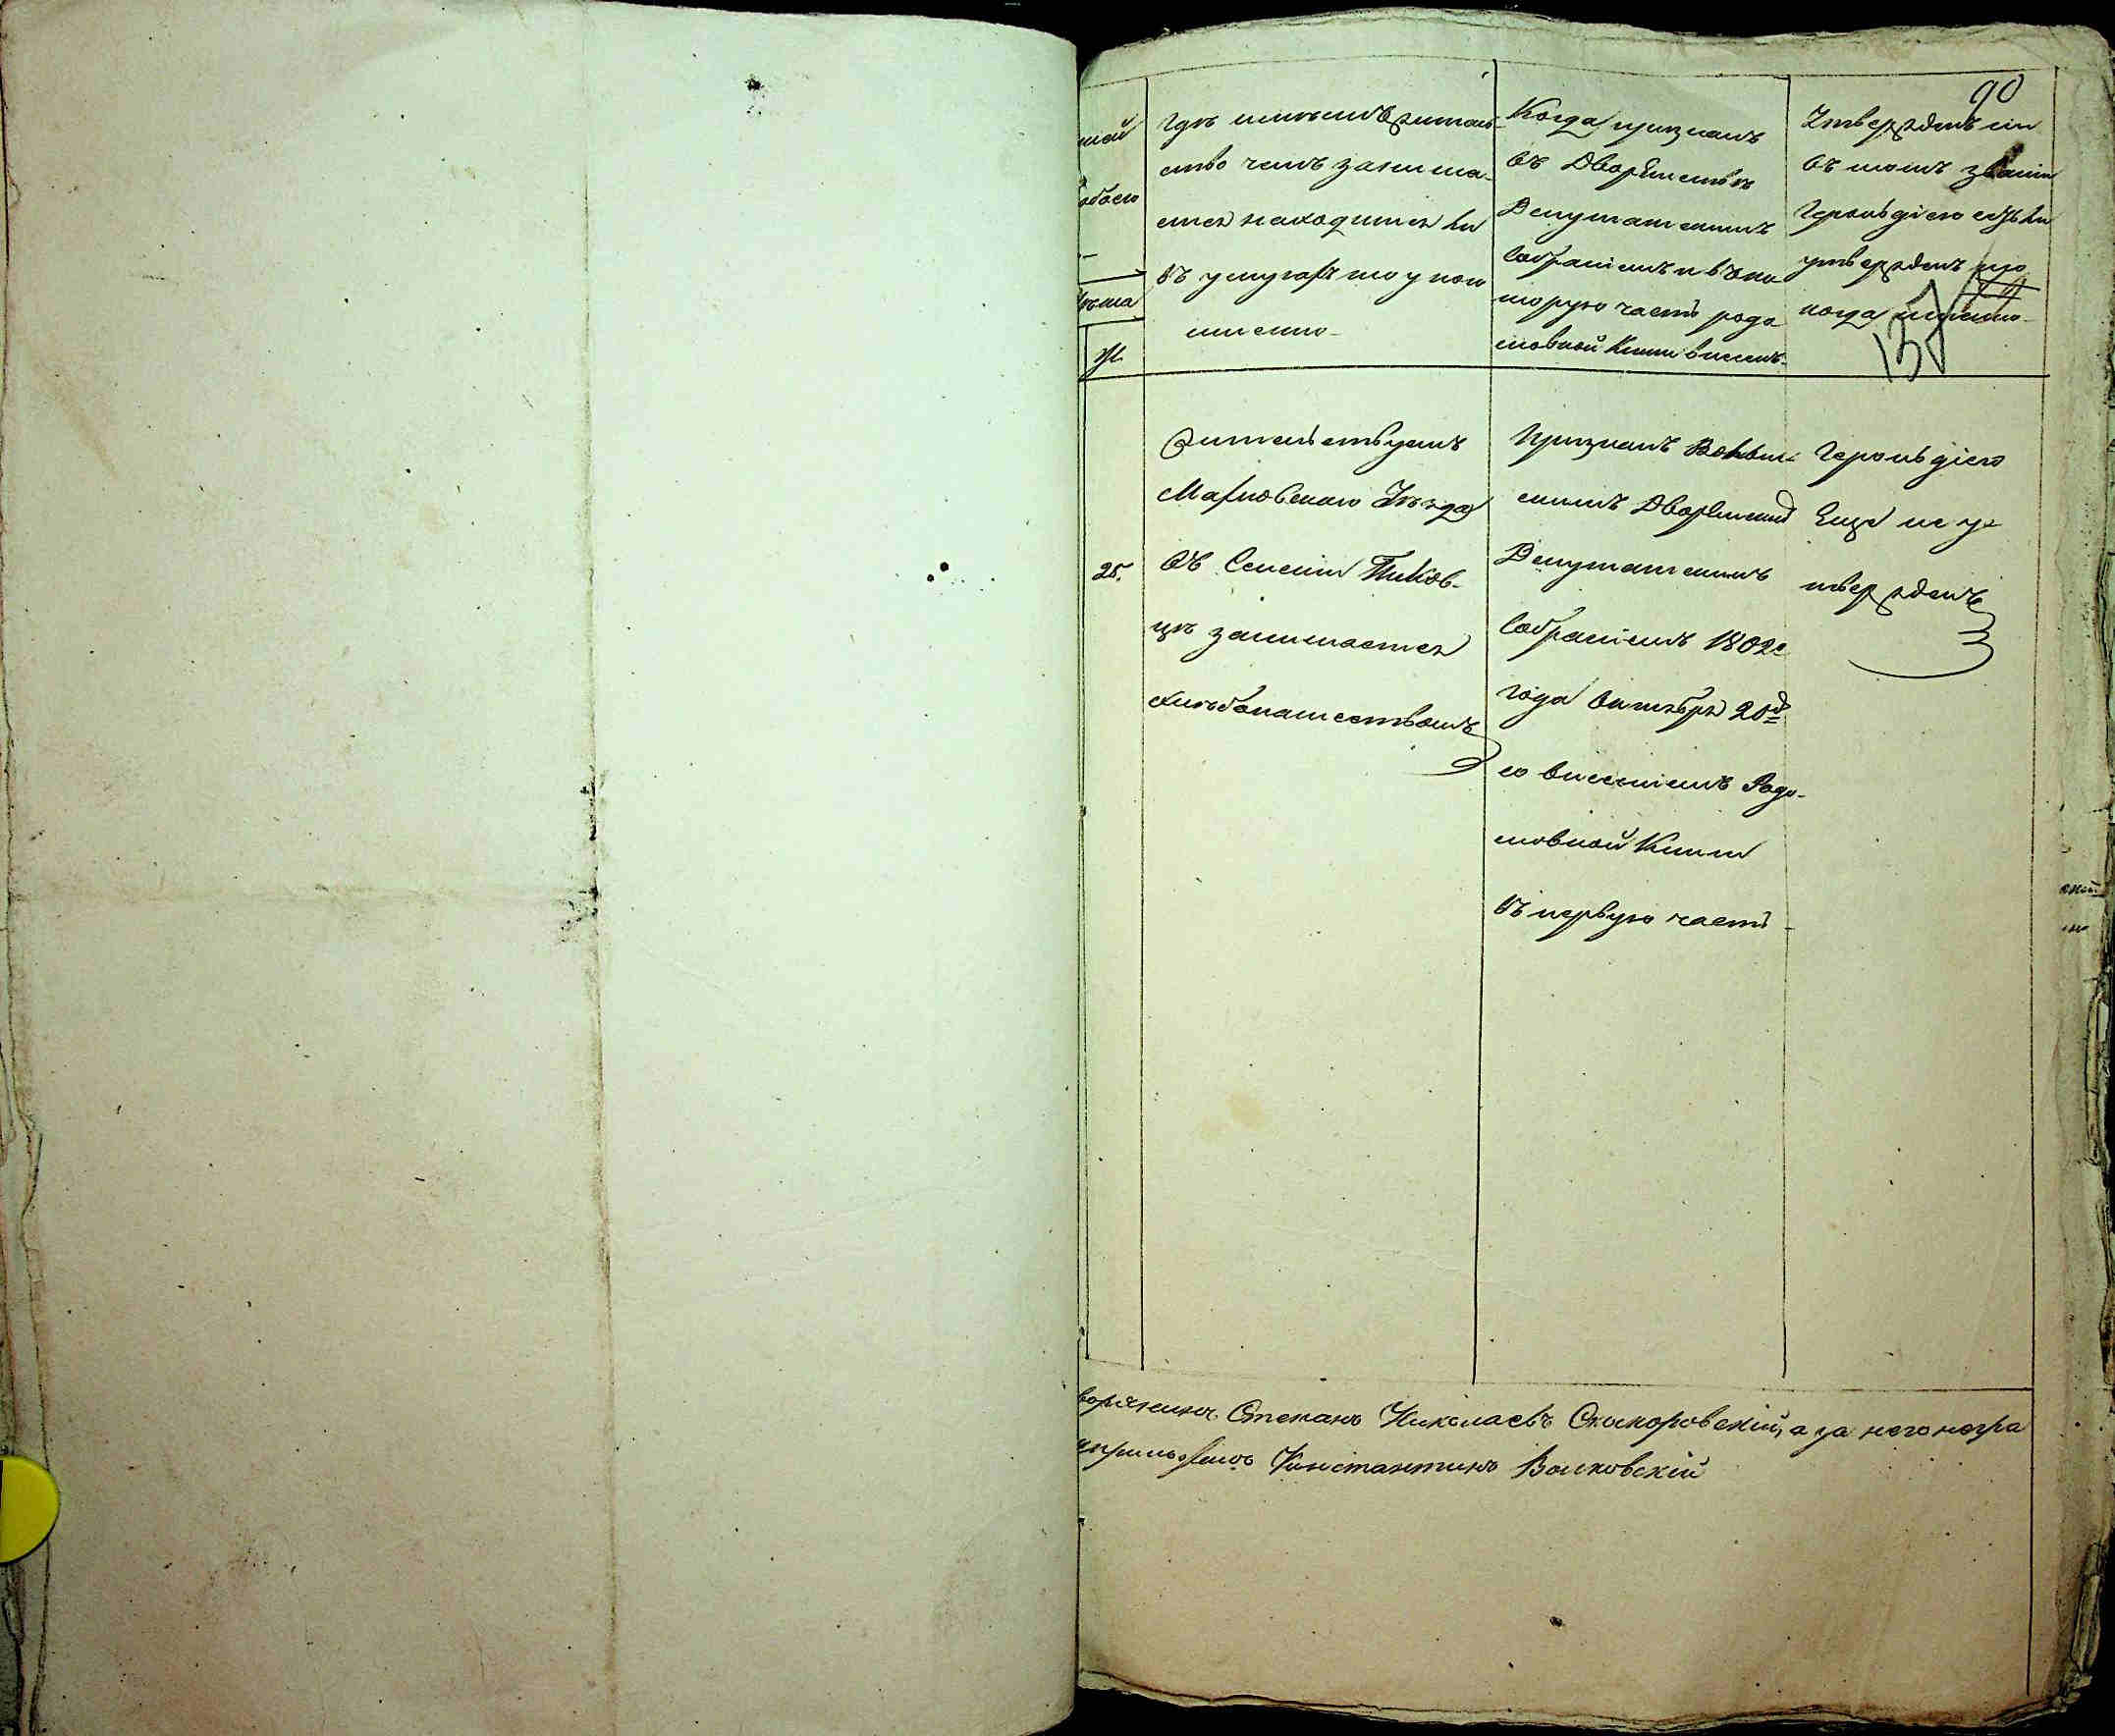 90
137
ной
обоего
лѣта
ж.
Гдѣ имѣетъ житель-
ство чемъ занима-
ется находится ли
въ услугахъ то у кого
именно-
Когда признанъ
въ Дворянствѣ
Депутатскимъ
Собраніемъ и въ ко-
торую часть родо
словной Книги внесенъ-
Утвержденъ ли
въ томъ званіи
Герольдіею если
утвержденъ то
когда именно-
25.
Жительствуетъ
Махновскаго Уѣзда
въ Селеніи
занимается
хлѣбопашествомъ
Признанъ
скимъ Дворянскимъ
Депутатскимъ
Собраніемъ 1802
года Октября 20
со внесеніемъ Родо-
словной Книги
въ первую часть-
Герольдіею
Еще не у-
твержденъ
ворянинъ Степанъ Николаевъ Скикоровскій, а за него негра
Константинъ Волковскій